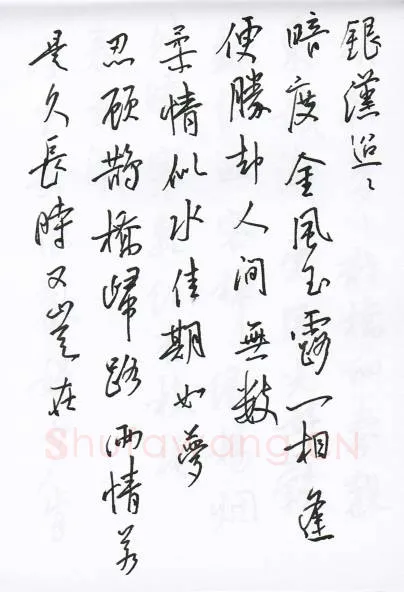 銀漢迢〻
暗度金風玉露一相逢
便勝却人间無数
柔情似水佳期如夢
忍顧鵲橋歸路两情若
是久長時又豈在
Shufawang.CN